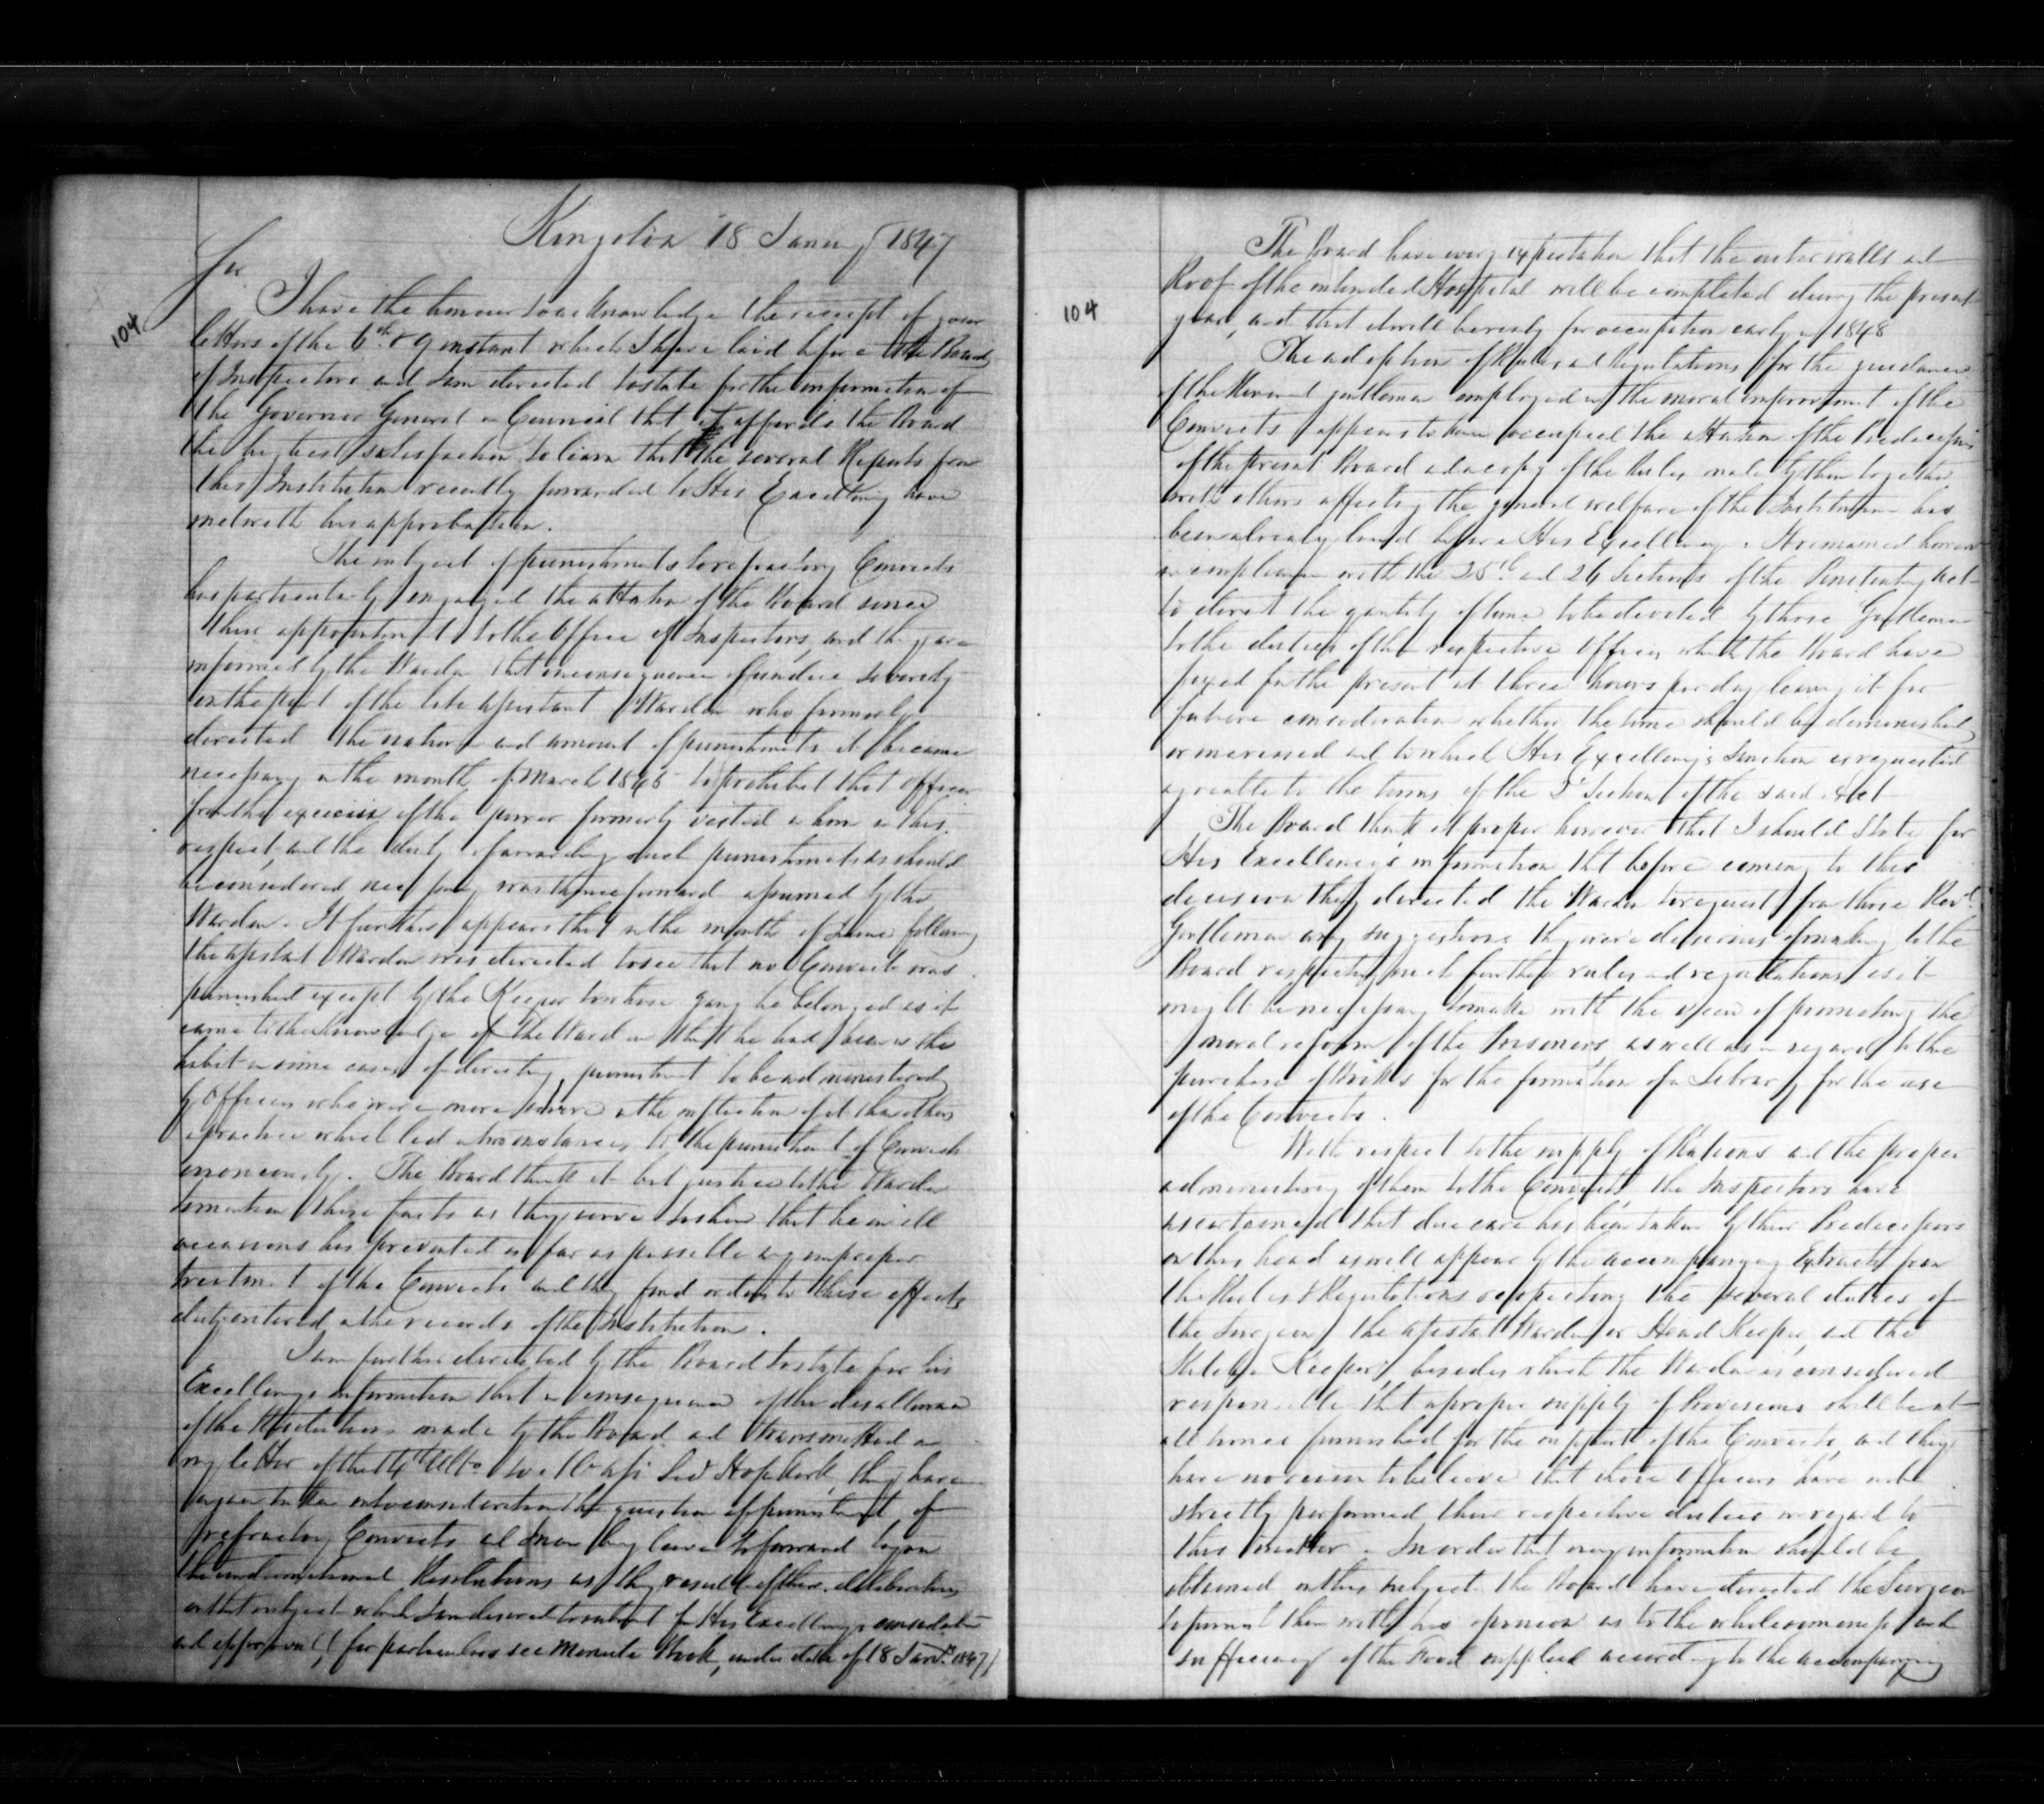 Kingston 18 January 1847
Sir
104
I have the honour to acknowledge the receipt of your
letters of the 6th & 9 instant which I have laid before the Board
of Inspectors and I am directed to state for the information of
the Governor General in Council that it affords the Board
the highest satisfaction to learn that the several Reports from
this Institution recently forwarded to His Excellency have
met with his approbation.
The subject of punishments to refractory Convicts
has particularly engaged the attention of the Board since
their appointment to the Office of Inspectors, and they are
informed by the Warden that in consequence of undue severity
on the part of the late assistant Warden who formerly
directed the nature and amount of punishments it became
necessary in the month of March 1846 to prohibit that officer
from the exercise of the power formerly vested in him in this
respect, and the duty of awarding such punishments as should
be considered necessary was thenceforward assumed by the
Warden. It further appears that in the month of June following
the assistant Warden was directed to see that no Convict was
punished except by the Keeper to whose gang he belonged as it
came to the knowledge of the Warden that he had been in the
habit in some cases of directing punishment to be administered
by Officers who were more severe in the infliction of it than others
a practice which led in two instances to the punishment of Convicts
erroneously. The Board think it but justice to the Warden
to mention these facts as they serve to shew that he on all
occasions has prevented as far as possible any improper
treatment of the Convicts and they find orders to these effects
duly entered in the records of the Institution.
I am further directed by the Board to state for his
Excellency's information that in consequence of the disallowance
of the Resolutions made by the Board and transmitted in
my letter of the 14th Ulto to they have
again taken into consideration the question of punishment of
refractory Convicts and I now beg leave to forward to you
the undermentioned Resolutions as the result of their deliberations
on that subject which I am desired to submit for His Excellency's consideration
and approval, (for particulars see Minute Book, under date of 18 Jany. 1847)
104
The Board have every expectation that the outer walls and
Roof of the intended Hospital will be completed during the present
year, and that it will be ready for occupation early in 1848
The adoption of Rules and Regulations for the guidance
of the Reverend gentlemen employed in the moral improvement of the
Convicts appears to have occupied the attention of the Predecessors
of the present Board and a copy of the Rules made by them together
with others affecting the general welfare of the Institution has
been already laid before His Excellency. It remained however
in compliance with the 25th and 26 Sections of the Penitentiary Act
to direct the quantity of time to be devoted by those Gentlemen
to the duties of their respective Offices which the Board have
fixed for the present at three hours per day leaving it for
future consideration whether the time should be diminished
or increased and to which His Excellency's Sanction is requested
agreeable to the terms of the 5 Section of the said Act
The Board think it proper however that I should State for
His Excellency's information that before coming to this
decision they directed the Warden to request from those Revd.
Gentlemen any suggestions they were desirous of making to the
Board respecting such further rules and regulations as it
might be necessary to make with the view of promoting the
moral reform of the Prisoners, as well as in regard to the
purchase of Books for the formation of a Library for the use
of the Convicts.
With respect to the supply of Rations and the proper
administering of them to the Convicts the Inspectors have
ascertained that due care has been taken by their Predecessors
on this head as will appear by the accompanying Extracts from
the Rules & Regulations respecting the several duties of
the Surgeon, the assistant Warden or Head Keeper, and the
Kitchen Keeper, besides which the Warden is considered
responsible that a proper supply of Provisions shall be at
all times furnished for the support of the Convicts, and they
have no reason to believe that those Officers have not
strictly performed their respective duties in regard to
this matter. In order that every information should be
obtained on this subject the Board have directed the Surgeon
to furnish them with his opinion as to the wholesomeness and
sufficiency of the Food supplied according to the accompanying